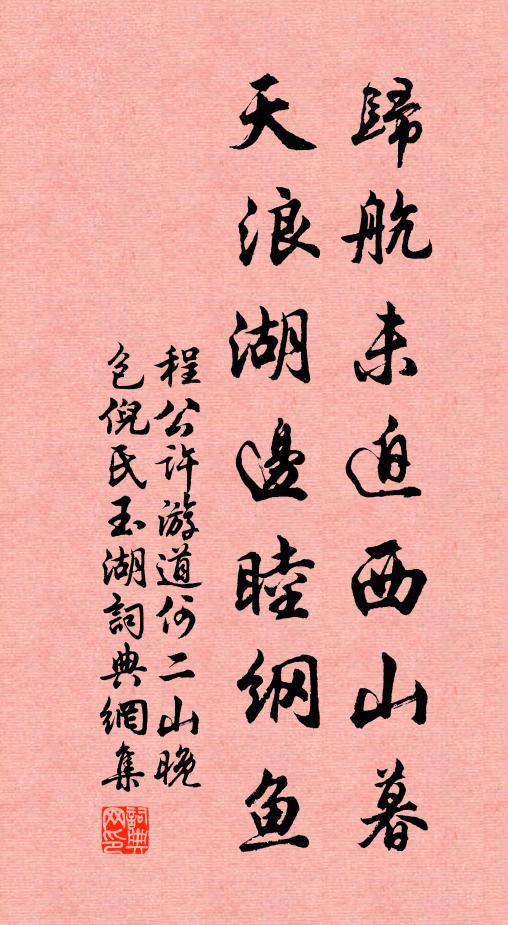 歸航未迫西山暮
天浪湖邊睦網魚
程公許游道何二山晚
色倪氏玉湖詞典網集
詞典網印